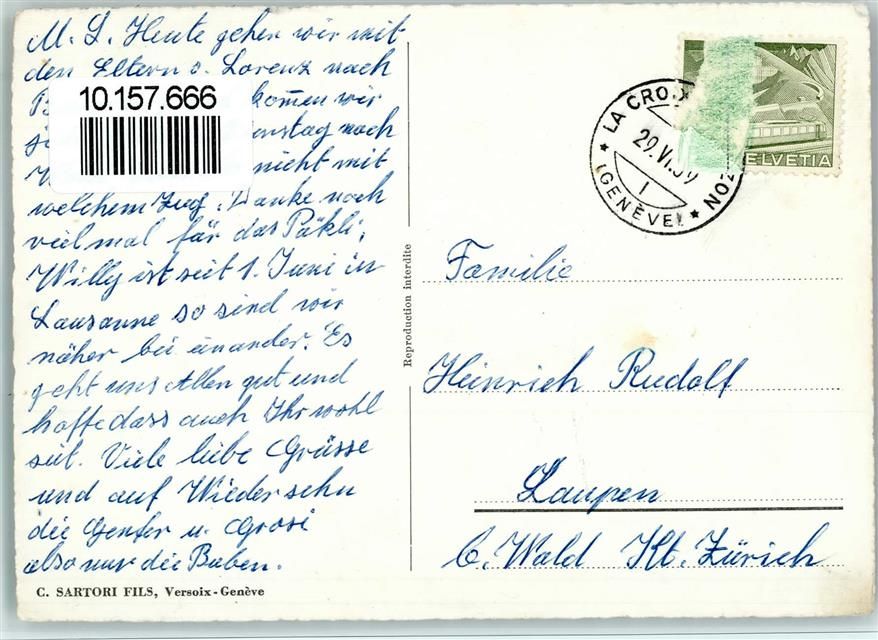 M. L. Heute gehen wir mit
den Eltern v. Lorenz nach
10.157.666
komen wir
nstag nach
nicht mit
welchem Zug. Danke noch
viel mal für das Päkli,
Willy ist seit 1. Juni in
Lausanne so sind wir
näher bei einander. Es
geht uns Allen gut und
hoffe dass auch Ihr wohl
seit. Viele liebe Grüsse
und auf Wiedersehn
die Genfer u. Grosi
also nur die Buben.
C. SARTORI FILS, Versoix-Genève
Reproduction interdite
LA CROIX
ZON
29.VI.59
1
(GENÈVE)
HELVETIA
Familie
Heinrich Rudolf
Laupen
b. Wald Kt. Zürich